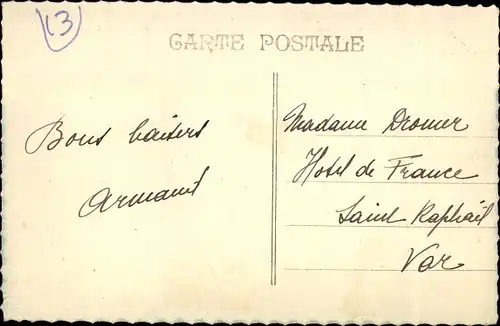 13
CARTE POSTALE
Bons baisers
Armand
Madame Dromer
Hotel de France
Saint Raphaël
Var